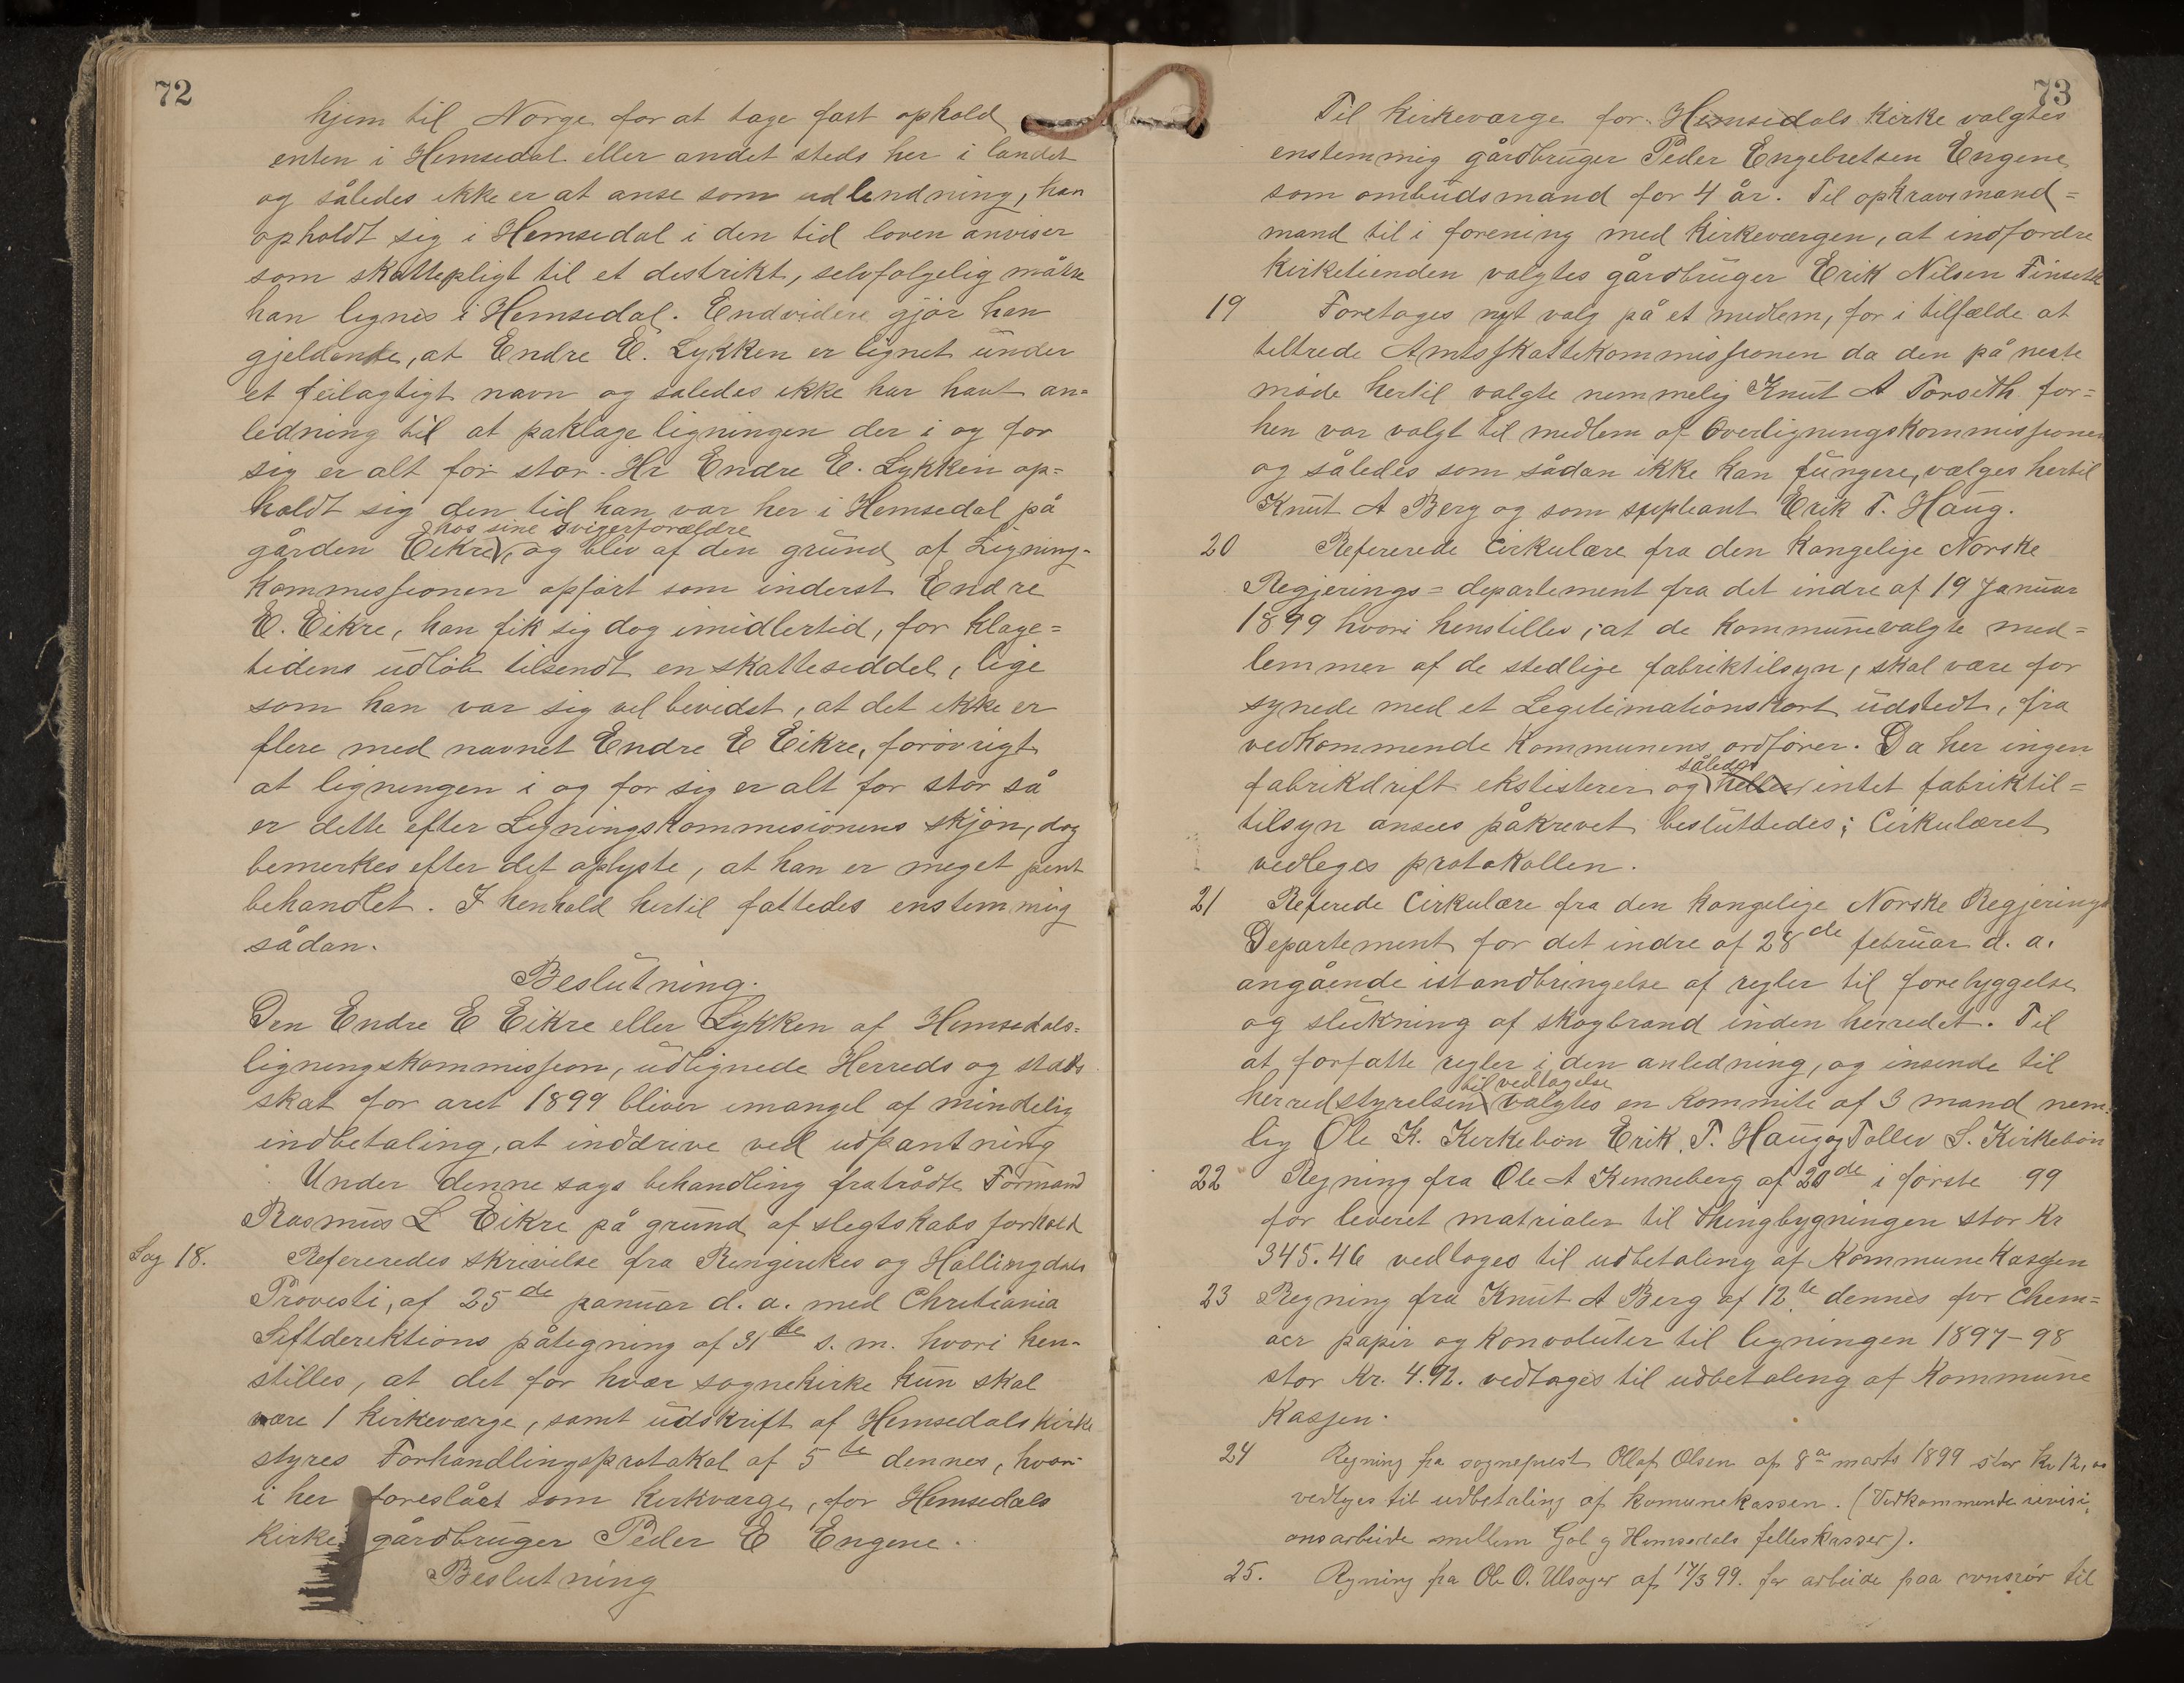 72
hjem til Norge for at tage fast ophold
enten i Hemsedal eller andet steds her i landet
og således ikke er at anse som udlendning, han
opholdt sig i Hemsedal i den tid loven anviser
som skattepligt til et destrikt, selvfølgelig måtte
han lignes i Hemsedal. Endvidere gjør han
gjeldende, at Endre E. Lykken er lignet under
et feilagtigt navn og saledes ikke har havt an=
ledning til at paklage ligningen der i og for
sig er alt for stor. Hr Endre E. Lykken op=
holdt sig den tid han var her i Hemsedal på
hos sine svigerforældre
gården Eikre, og blev af den grund af Ligning-
kommissionen opført som inderst Endre
E. Eikre, han fik sig dog imidlertid, før klage=
tidens udløb tilsendt en skatteseddel, lige
som han var sig vel bevidst, at det ikke er
flere med navnet Endre E Eikre, forøvrigt
at ligningen i og for sig er alt for stor så
er dette efter Ligningskommesionens skjøn, dog
bemerkes efter det oplyste, at han er meget pent
behandlet. I henhold hertil fattedes enstemmig
sådan.
Beslutning.
Den Endre E Eikre eller Lykken af Hemsedals=
ligningskommission, udlignede Herreds og stats
skat for aret 1899 bliver imangel af mindelig
indbetaling, at inddrive ved udpantning
Under denne sags behandling fratrådte Formand
Rasmus L Eikre på grund af slegtskabs forhold
Sag 18. Refereredes skrivelse fra Ringerikes og Hallingdals
Provesti, af 25de januar d. a. med Christiania
Stiftderektions påtegning af 31te s. m. hvori hen-
stilles, at det for hver sognekirke kun skal
være 1 kirkeværge, samt udskrift af Hemsedals kirke
styres Forhandlingsprotokol af 5te dennes, hvor-
i her foreslået som kerkværge, for Hemsedals
kirke gårdbruger Peder E Engene.
Beslutning
73
Til kirkeværge for Hemsedals kirke valgtes
enstemmig gårdbruger Peder Engebretsen Engene
som ombudsmand for 4 år. Til opkrævsmand=
mand til i forening med kirkeværgen, at indfordre
kirketienden valgtes gårdbruger Erik Nilsen Finseth
19 Foretages nyt valg på et medlem, for i tilfælde at
tiltrede Amtsskattekommissionen da den på neste
møde hertil valgte nemmelig Knut A Torseth for=
hen var valgt til medlem af Overligningskommissionen
og således som sådan ikke kan fungere, vælges hertil
Knut A Berg og som suppleant Erik T. Haug.
20 Refererede Cirkulære fra den Kongelige Norske
Regjerings=departement fra det indre af 19 Januar
1899 hvori henstilles, at de kommunevalgte med=
lemmer af de stedlige fabriktilsyn, skal være for
synede med et Legitimationskort udstedt, fra
vedkommende Kommunens ordfører. Da her ingen
således
fabrikdrift ekstisterer og heller intet fabriktil=
tilsyn ansees påkrevet besluttedes; Cirkulæret
vedleges protokollen.
21 Referede Cirkulære fra den kongelige Norske Regjerings
Departement for det indre af 28de februar d. a.
angående istandbringelse af regler til forebyggelse
og slukning af skogbrand inden herredet. Til
at forfatte regler i den anledning, og insende til
til vedtagelse
herredstyrelsen valgtes en Kommite af 3 mand nem=
lig Ole K. Kirkebøn Erik. T. Haug og Tollev S. Kirkebøn
22 Regning fra Ole A Kenneberg af 20de i første 99
for leveret matrialer til thingbygningen stor kr
345.46 vedtages til udbetaling af Kommunekassen
23 Regning fra Knut A Berg af 12te dennes for Chem=
aer papir og konvoluter til ligningen 1897-98
stor kr. 4.92. vedtages til udbetaling af Kommune
Kassen.
24 Regning fra sogneprest Olaf Olsen af 8de marts 1899 stor kr 12,00
vedtages til udbetaling af komunekassen. (Vedkommende revisi=
onsarbeide mellem Gol og Hemsedals felleskasser).
25. Regning fra Ole O. Ulsager af 17/3 99. for arbeide paa til